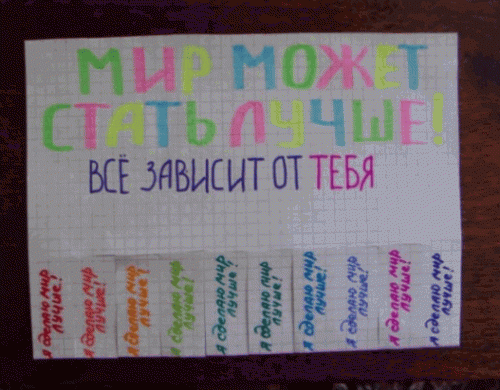 МИР МОЖЕТ
СТАТЬ ЛУЧШЕ!
ВСЁ ЗАВИСИТ ОТ ТЕБЯ
Я сделаю мир
лучше!
Я сделаю мир
лучше!
Я сделаю мир
лучше!
Я сделаю мир
лучше!
Я сделаю мир
лучше!
Я сделаю мир
лучше!
Я сделаю мир
лучше!
Я сделаю мир
лучше!
Я сделаю мир
лучше!
Я сделаю мир
лучше!